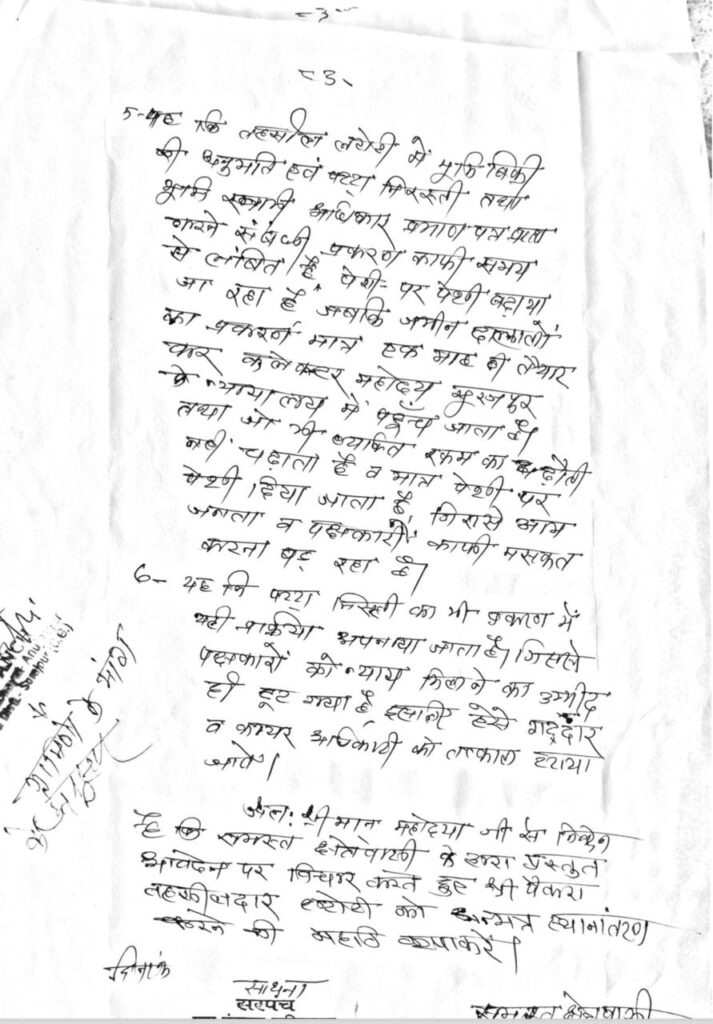 -3-
-3-
5- यह कि तहसील लटोरी में भूमि बिक्री
की अनुमति एवं पट्टा निरस्ती तथा
भूमि स्वामी अधिकार प्रमाण पत्र प्राप्त
करने संबंधी प्रकरण काफी समय
से लंबित है पेशी पर पेशी बढ़ाया
जा रहा है जबकि जमीन दलालों
का प्रकरण मात्र एक माह में तैयार
कर कलेक्टर महोदय सूरजपुर
के न्यायालय में पहुँच जाता है।
तथा जो भी व्यक्ति रकम का चढ़ौत्री
नहीं चढ़ाता है व मात्र पेशी पर
पेशी दिया जाता है, जिससे आम
जनता व पक्षकारों काफी मसकत
करना पड़ रहा है।
6- यह कि पट्टा निरस्ती का भी प्रकरण में
यही प्रक्रिया अपनाया जाता है। जिससे
पक्षकारों को न्याय मिलने का उम्मीद
ही टूट गया है इसलिए ऐसे गद्दार
व कायर अधिकारी को तत्काल हटाया
जावे।
अतः श्रीमान महोदया जी से निवेदन
है कि समस्त क्षेत्रवासी के द्वारा प्रस्तुत
आवेदन पर विचार करते हुए श्री पैकरा
तहसीलदार लटोरी को अन्यत्र स्थानांतरण
करने की महति कृपा करें।
दिनांक
साधना
सरपंच
समस्त क्षेत्रवासी
ग्रामीणों के मांग